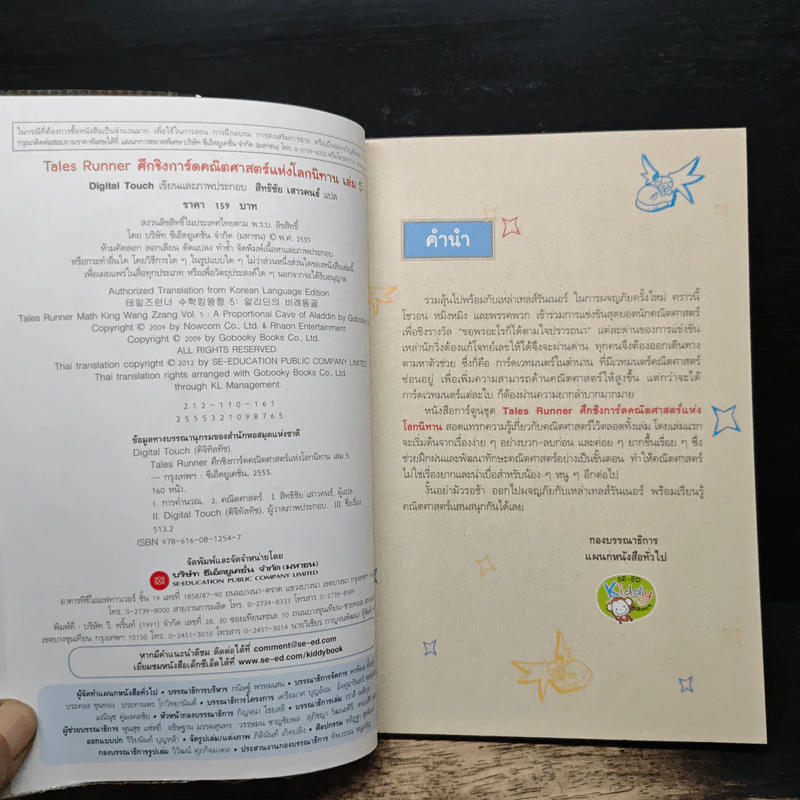 ในกรณีที่ต้องการซื้อหนังสือเป็นจำนวนมาก เพื่อใช้ในการสอน การฝึกอบรม การส่งเสริมการขาย หรือเป็นของขวัญพิเศษ
กรุณาติดต่อสอบถามราคาพิเศษได้ที่ แผนกการตลาดพิเศษ บริษัท ซีเอ็ดยูเคชั่น จำกัด (มหาชน) โทร. 0-2739-8222 หรือโทรสาร
Tales Runner ศึกชิงการ์ดคณิตศาสตร์แห่งโลกนิทาน เล่ม 5
Digital Touch เขียนและภาพประกอบ สิทธิชัย เสาวคนธ์ แปล
ราคา 159 บาท
สงวนลิขสิทธิ์ในประเทศไทยตาม พ.ร.บ. ลิขสิทธิ์
โดย บริษัท ซีเอ็ดยูเคชั่น จำกัด (มหาชน) © พ.ศ. 2555
ห้ามคัดลอก ลอกเลียน ดัดแปลง ทำซ้ำ จัดพิมพ์เนื้อหาและภาพประกอบ
หรือกระทำอื่นใด โดยวิธีการใด ๆ ในรูปแบบใด ๆ ไม่ว่าส่วนหนึ่งส่วนใดของหนังสือเล่มนี้
เพื่อเผยแพร่ในสื่อทุกประเภท หรือเพื่อวัตถุประสงค์ใด ๆ นอกจากจะได้รับอนุญาต
Authorized Translation from Korean Language Edition.
테일즈런너 수학킹왕짱 5: 알리딘의 비례동굴
Tales Runner Math King Wang Zzang Vol. 5 : A Proportional Cave of Aladdin by Gobooky
Copyright © 2009 by Nowcom Co., Ltd. & Rhaon Entertainment
Copyright © 2009 by Gobooky Books Co., Ltd.
ALL RIGHTS RESERVED
Thai copyright © 2012 by SE-EDUCATION PUBLIC COMPANY LIMITED
Thai translation rights arranged with Gobooky Books Co., Ltd.
through KL Management.
212-110-161
2555321098765
ข้อมูลทางบรรณานุกรมของสำนักหอสมุดแห่งชาติ
Digital Touch (ดิจิทัลทัช).
Tales Runner ศึกชิงการ์ดคณิตศาสตร์แห่งโลกนิทาน เล่ม 5.
-- กรุงเทพฯ : ซีเอ็ดยูเคชั่น, 2555.
160 หน้า.
1. การคำนวณ. 2. คณิตศาสตร์. I. สิทธิชัย เสาวคนธ์, ผู้แปล.
II. Digital Touch (ดิจิทัลทัช), ผู้วาดภาพประกอบ. III. ชื่อเรื่อง.
513.2
ISBN 978-616-08-1254-7
จัดพิมพ์และจัดจำหน่ายโดย
บริษัท ซีเอ็ดยูเคชั่น จำกัด (มหาชน)
SE-EDUCATION PUBLIC COMPANY LIMITED
อาคารทีซีไอเอฟทาวเวอร์ ชั้น 19 เลขที่ 1858/87-90 ถนนบางนา-ตราด แขวงบางนา เขตบางนา กรุงเทพฯ
โทร. 0-2739-8000 สายงานการผลิต โทร. 0-2739-8333 โทรสาร 0-2739-8589
พิมพ์ที่ : บริษัท วี. พริ้นท์ (1991) จำกัด เลขที่ 28, 30 ซอยเทียนทะเล 10 ถนนบางขุนเทียน-ชายทะเล
เขตบางขุนเทียน กรุงเทพฯ 10150 โทร. 0-2451-3010 โทรสาร 0-2451-3014 นายวิเชียร กาญจนพัฒนา
หากมีคำแนะนำติชม ติดต่อได้ที่ comment@se-ed.com
เยี่ยมชมหนังสือเด็กซีเอ็ดได้ที่ www.se-ed.com/kiddybook
ผู้จัดทำแผนกหนังสือทั่วไป • บรรณาธิการบริหาร กนิษฐ์ พรหมเสน • บรรณาธิการจัดการ
คำนำ
ร่วมลุ้นไปพร้อมกับเหล่าเทลส์รันเนอร์ ในการผจญภัยครั้งใหม่ คราวนี้
โชวอน หมิงหมิง และพรรคพวก เข้าร่วมการแข่งขันสุดยอดนักคณิตศาสตร์
เพื่อชิงรางวัล “ขอพรอะไรก็ได้ตามใจปรารถนา” แต่ละด่านของการแข่งขัน
เหล่านักวิ่งต้องแก้โจทย์เลขให้ได้จึงจะผ่านด่าน ทุกคนจึงต้องออกเดินทาง
ตามหาตัวช่วย ซึ่งก็คือ การ์ดเวทมนตร์ในตำนาน ที่มีเวทมนตร์คณิตศาสตร์
ซ่อนอยู่ เพื่อเพิ่มความสามารถด้านคณิตศาสตร์ให้สูงขึ้น แต่กว่าจะได้
การ์ดเวทมนตร์แต่ละใบ ก็ต้องผ่านความยากลำบากมากมาย
หนังสือการ์ตูนชุด Tales Runner ศึกชิงการ์ดคณิตศาสตร์แห่ง
โลกนิทาน สอดแทรกความรู้เกี่ยวกับคณิตศาสตร์ไว้ตลอดทั้งเล่ม โดยเล่มแรก
จะเริ่มต้นจากเรื่องง่าย ๆ อย่างบวก-ลบก่อน และค่อย ๆ ยากขึ้นเรื่อย ๆ ซึ่ง
ช่วยฝึกฝนและพัฒนาทักษะคณิตศาสตร์อย่างเป็นขั้นตอน ทำให้คณิตศาสตร์
ไม่ใช่เรื่องยากและน่าเบื่อสำหรับน้อง ๆ หนู ๆ อีกต่อไป
งั้นอย่ามัวรอช้า ออกไปผจญภัยกับเหล่าเทลส์รันเนอร์ พร้อมเรียนรู้
คณิตศาสตร์แสนสนุกกันได้เลย
กองบรรณาธิการ
แผนกหนังสือทั่วไป
SE-ED
Kiddy
Book